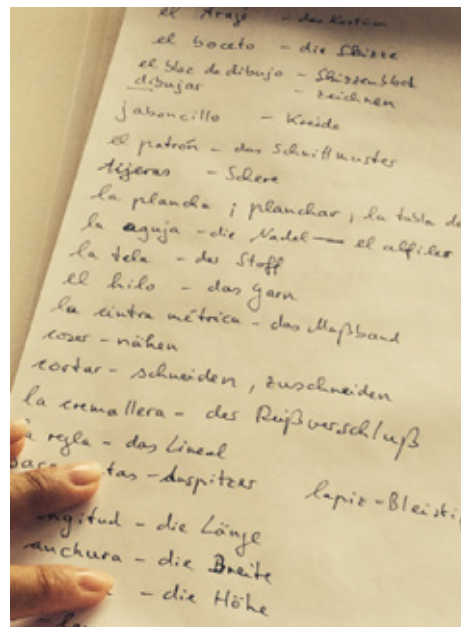 el traje - das Kostüm
el boceto - die Skizze
el bloc de dibujo - Skizzenblock
dibujar - zeichnen
jaboncillo - Kreide
el patrón - das Schnittmuster
tijeras - Schere
la plancha ; planchar ; la tabla de
la aguja - die Nadel — el alfiler
la tela - der Stoff
el hilo - das Garn
la cintra métrica - das Maßband
coser - nähen
cortar - schneiden, zuschneiden
la cremallera - der Reißverschluß
regla - das Lineal
tas - Anspitzer
lapiz - Bleisti
ngitud - die Länge
anchura - die Breite
- die Höhe